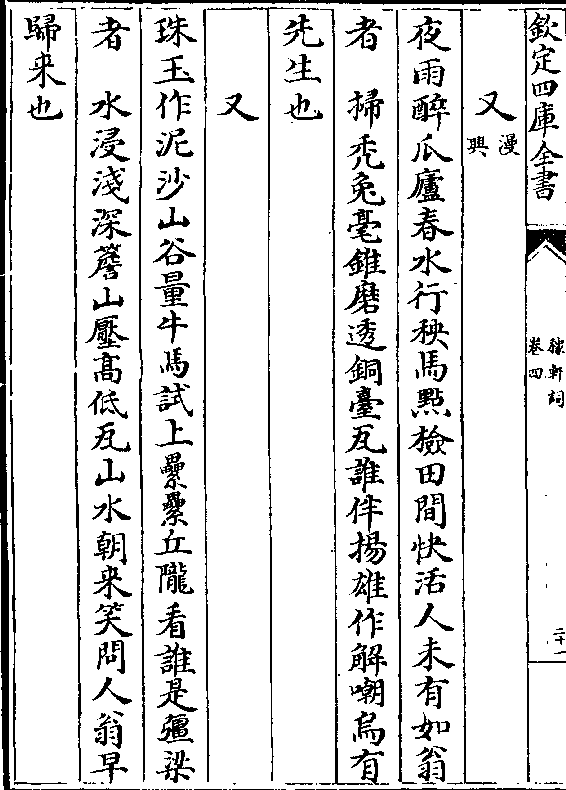 欽定四庫全書
稼軒詞
卷四
二十一
又漫興
夜雨醉瓜廬春水行秧馬點檢田間快活人未有如翁
者　掃禿兔毫錐磨透銅臺瓦誰伴揚雄作解嘲烏有
先生也
又
珠玉作泥沙山谷量牛馬試上纍纍丘隴看誰是彊梁
者　水浸淺深簷山壓高低瓦山水朝来笑問人翁早
歸来也